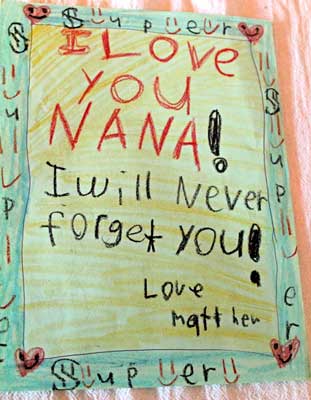 Super
I Love
you
NANA!
I will Never
forget you!
Love
matthew
Super
Super